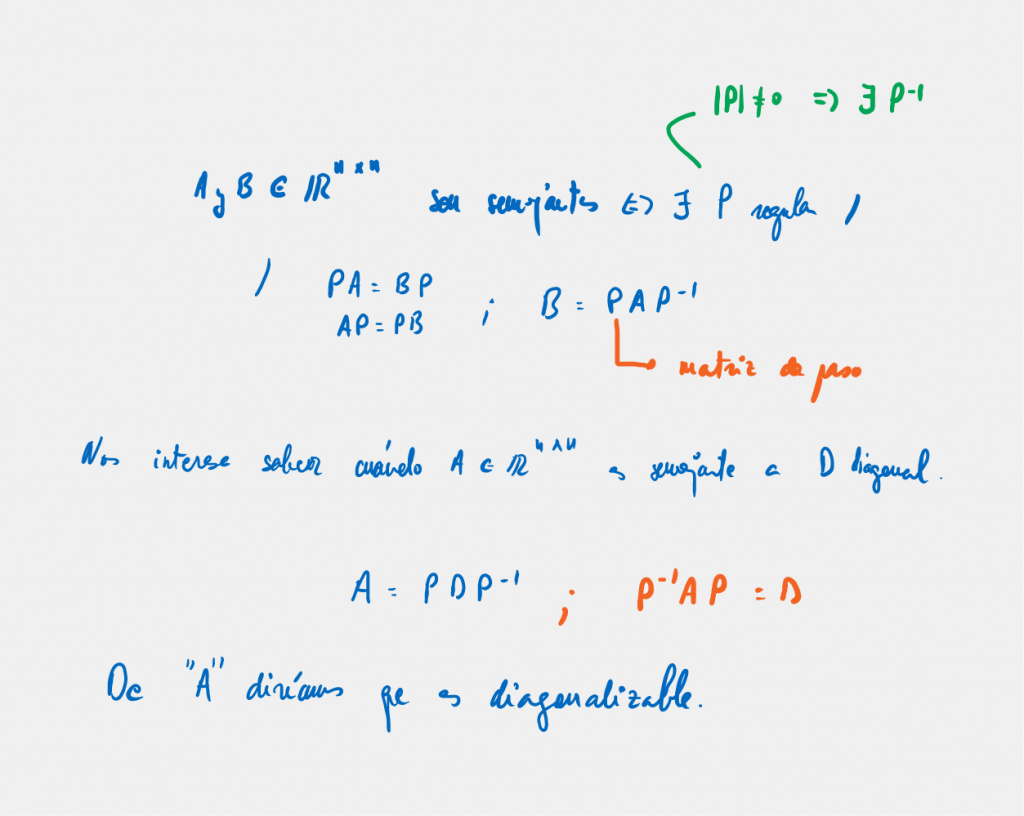 |P| ≠ 0 => ∃ P⁻¹
A y B ∈ ℝⁿˣⁿ son semejantes <=> ∃ P regular /
/ PA = BP ; B = PAP⁻¹
AP = PB
matriz de paso
Nos interesa saber cuándo A ∈ ℝⁿˣⁿ es semejante a D diagonal.
A = PDP⁻¹ ; P⁻¹AP = D
De "A" diríamos que es diagonalizable.